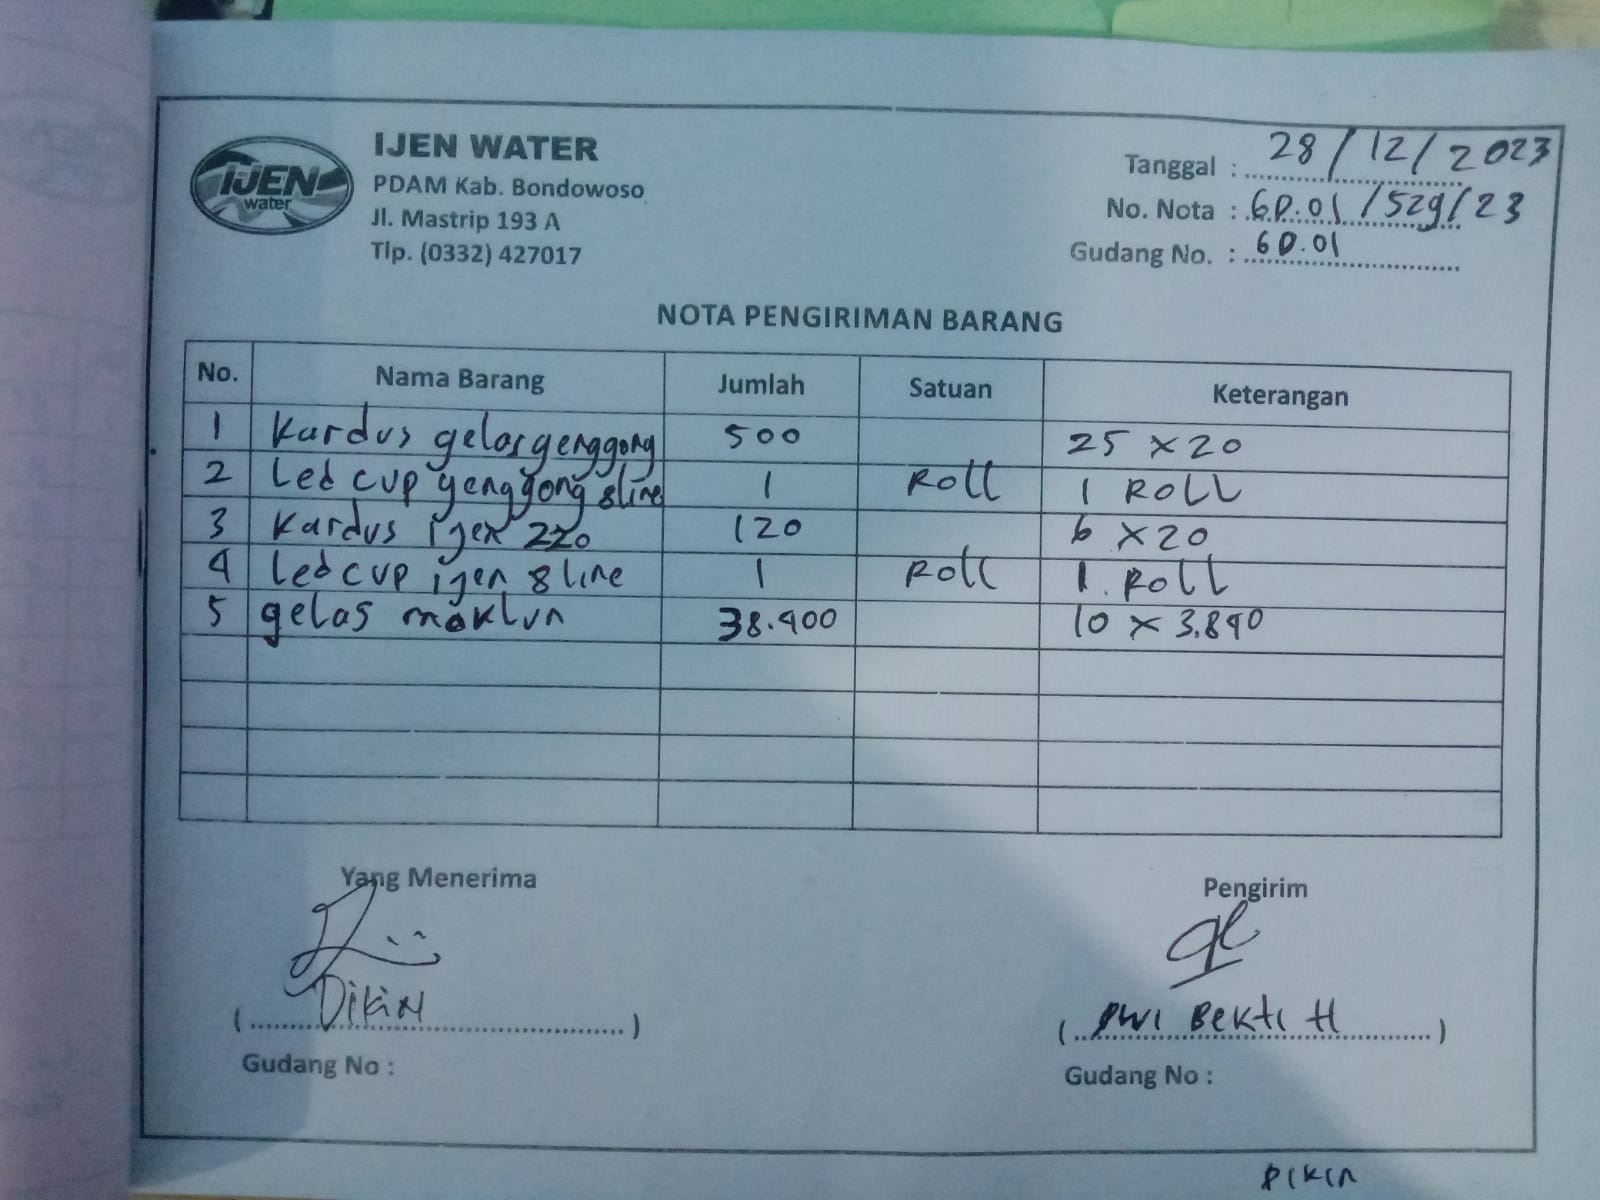 IJEN
water
IJEN WATER
PDAM Kab. Bondowoso
Jl. Mastrip 193 A
Tlp. (0332) 427017
Tanggal : 28/12/2023
No. Nota : 6D.01/529/23
Gudang No. : 6D.01
NOTA PENGIRIMAN BARANG
No. Nama Barang Jumlah Satuan Keterangan
1 Kardus gelas genggong 500 25 x 20
2 Led cup genggong 8 line 1 Roll 1 ROLL
3 Kardus ijen 220 120 6 x 20
4 Led cup ijen 8 line 1 Roll 1 Roll
5 gelas maklun 38.400 10 x 3.840
Yang Menerima
Pengirim
( Dikin )
( DWI BEKTI H )
Gudang No :
Gudang No :
DIKIN